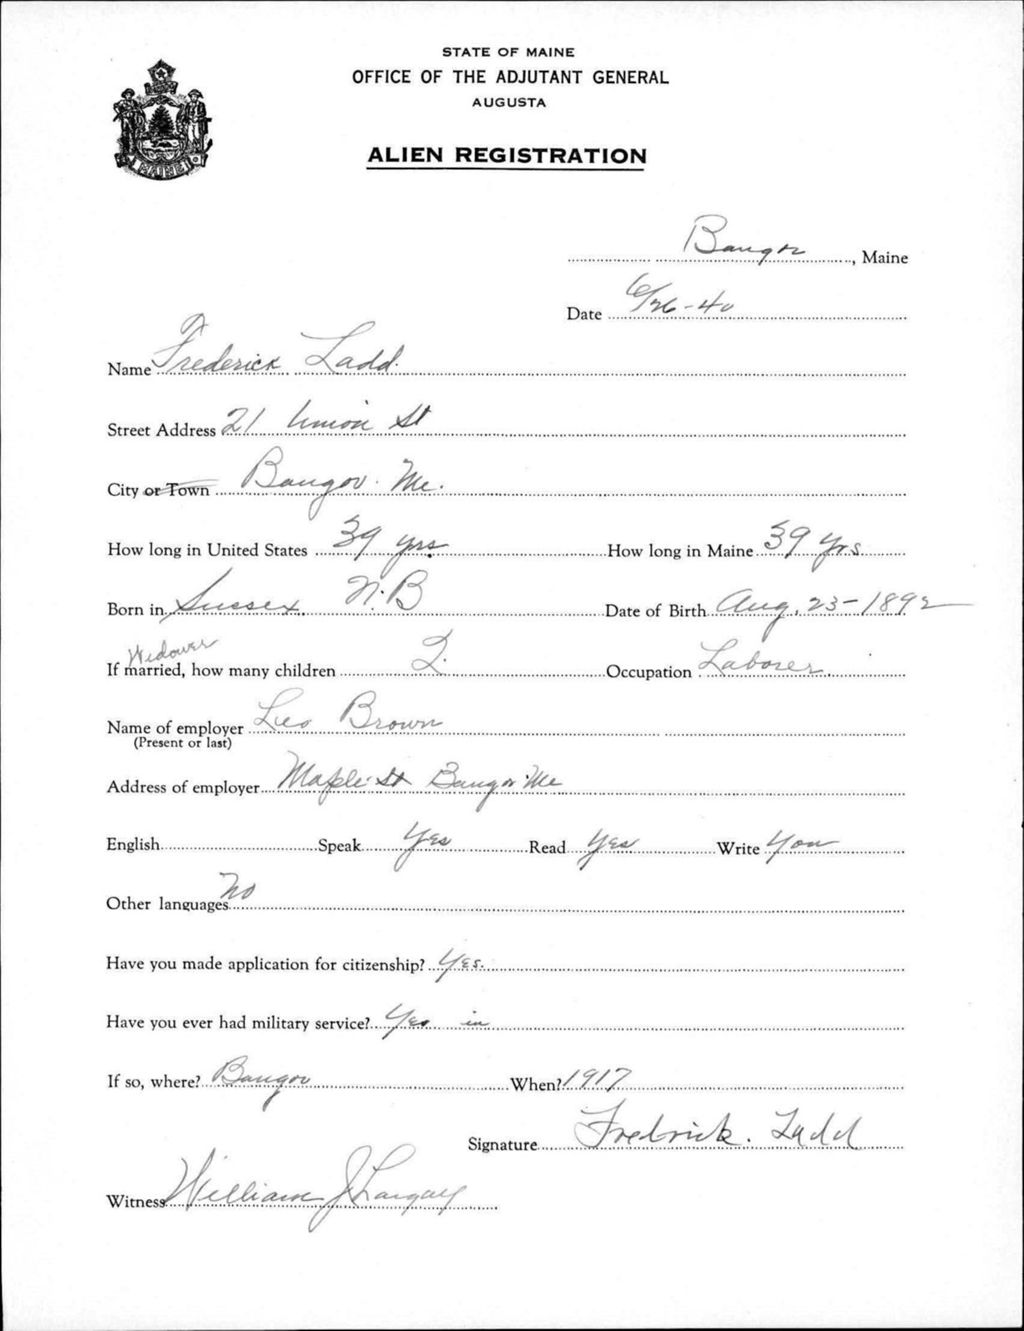 STATE OF MAINE
OFFICE OF THE ADJUTANT GENERAL
AUGUSTA
ALIEN REGISTRATION
MAINE
Bangor, Maine
Date 6/26-40
Name Frederick Ladd.
Street Address 21 Union St
City or Town Bangor. Me.
How long in United States 39 yrs How long in Maine 39 yrs
Born in Sussex N.B Date of Birth Aug. 23-1892
Widower
If married, how many children 2. Occupation Laborer
Name of employer Leo Brown
(Present or last)
Address of employer Maple St Bangor Me
English Speak Yes Read Yes Write You
Other languages No
Have you made application for citizenship? Yes.
Have you ever had military service? Yes in
If so, where? Bangor When? 1917
Signature Fredrick. Ladd
Witness William J